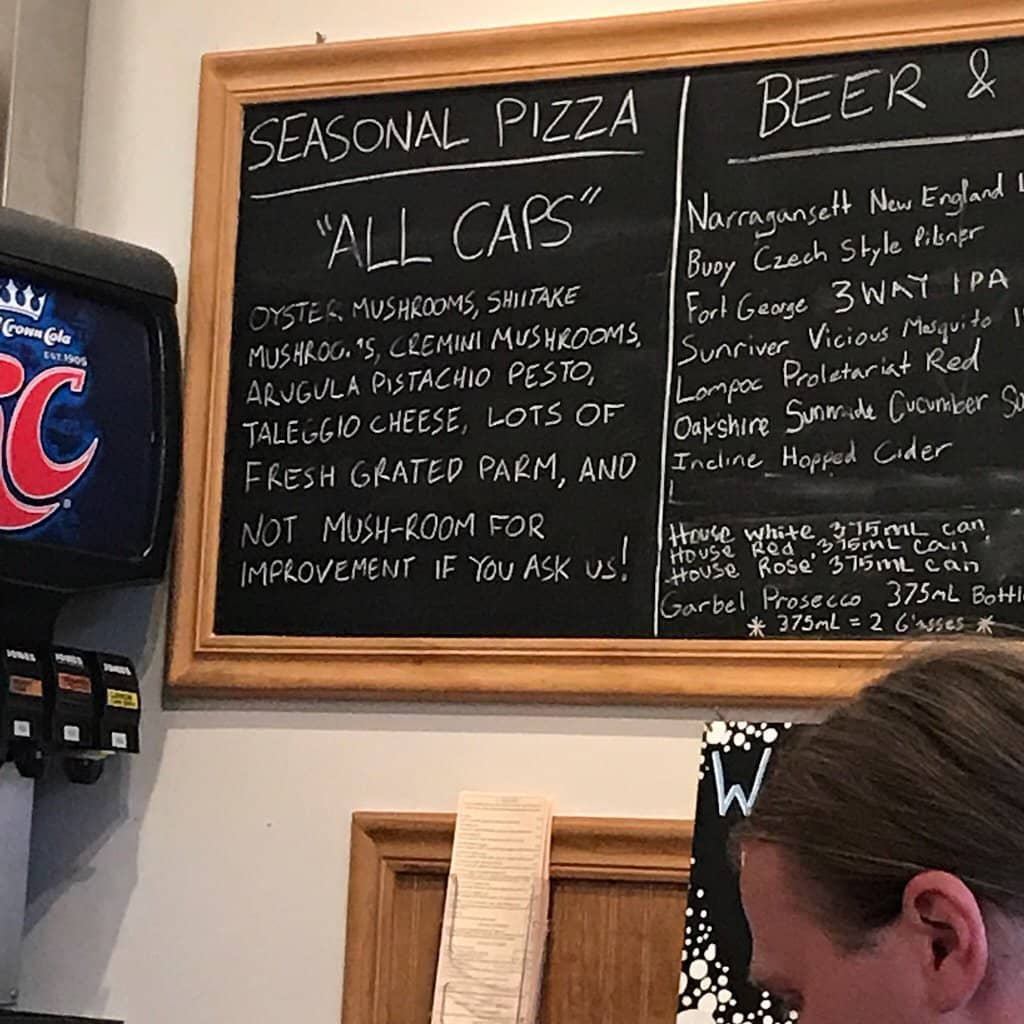 SEASONAL PIZZA
"ALL CAPS"
OYSTER MUSHROOMS, SHIITAKE
CREMINI MUSHROOMS,
ARUGULA PISTACHIO PESTO,
TALEGGIO CHEESE, LOTS OF
FRESH GRATED PARM, AND
NOT MUSH-ROOM FOR
IMPROVEMENT IF YOU ASK US!
BEER &
Narragansett New England
Buoy Czech Style Pilsner
Fort George 3 WAY IPA
Sunriver Vicious Mosquito
Lompoc Proletariat Red
Oakshire Sunmade Cucumber
Incline Hopped Cider
House White 375mL can
House Red 375mL can
House Rose 375mL can
Garbel Prosecco 375mL Bottle
* 375mL = 2 Glasses *
Crown Cola
EST. 1905
RC
JONES
JONES
JONES
W